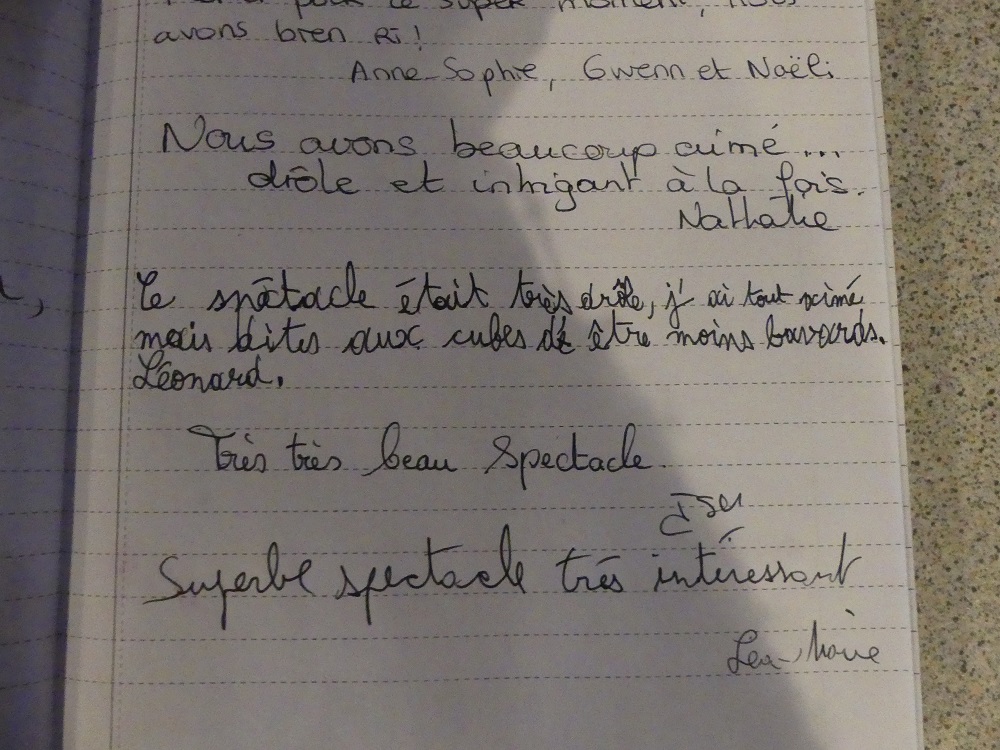 pour ce super moment, nous
avons bien Ri!
Anne-Sophie, Gwenn et Naëli
Nous avons beaucoup aimé...
drôle et intrigant à la fois.
Nathalie
Le spéctacle était très drôle, j'ai tout aimé
mais dites aux cubes dé être moins bavards.
Léonard.
Très très beau Spectacle
Superbe spectacle trés intéressant
Léa-Marie